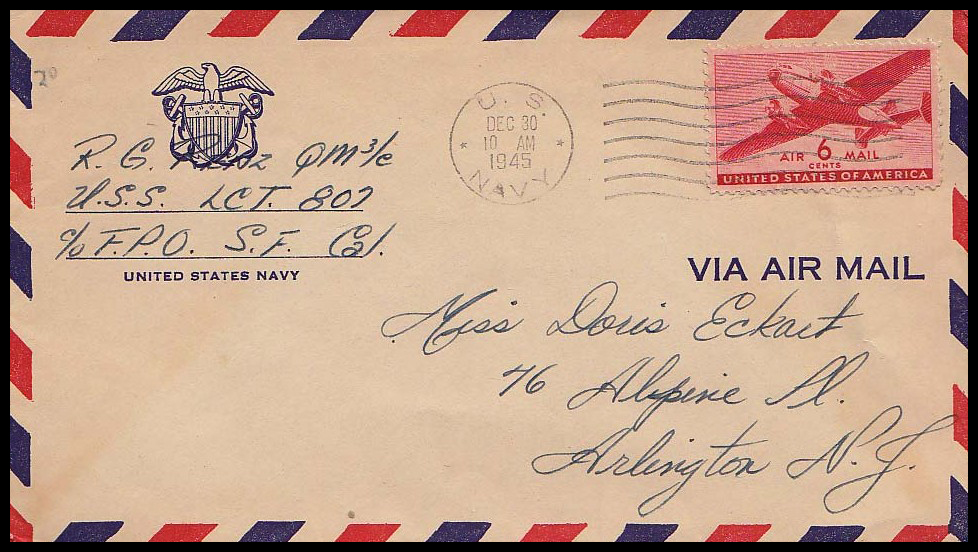 20
R. G. QM3/c
U.S.S. LCT. 807
c/o F.P.O. S.F. Cal.
UNITED STATES NAVY
U. S.
DEC 30
10 AM
1945
NAVY
AIR 6 MAIL
CENTS
UNITED STATES OF AMERICA
VIA AIR MAIL
Miss Doris Eckart
76 Alpine Pl.
Arlington N.J.